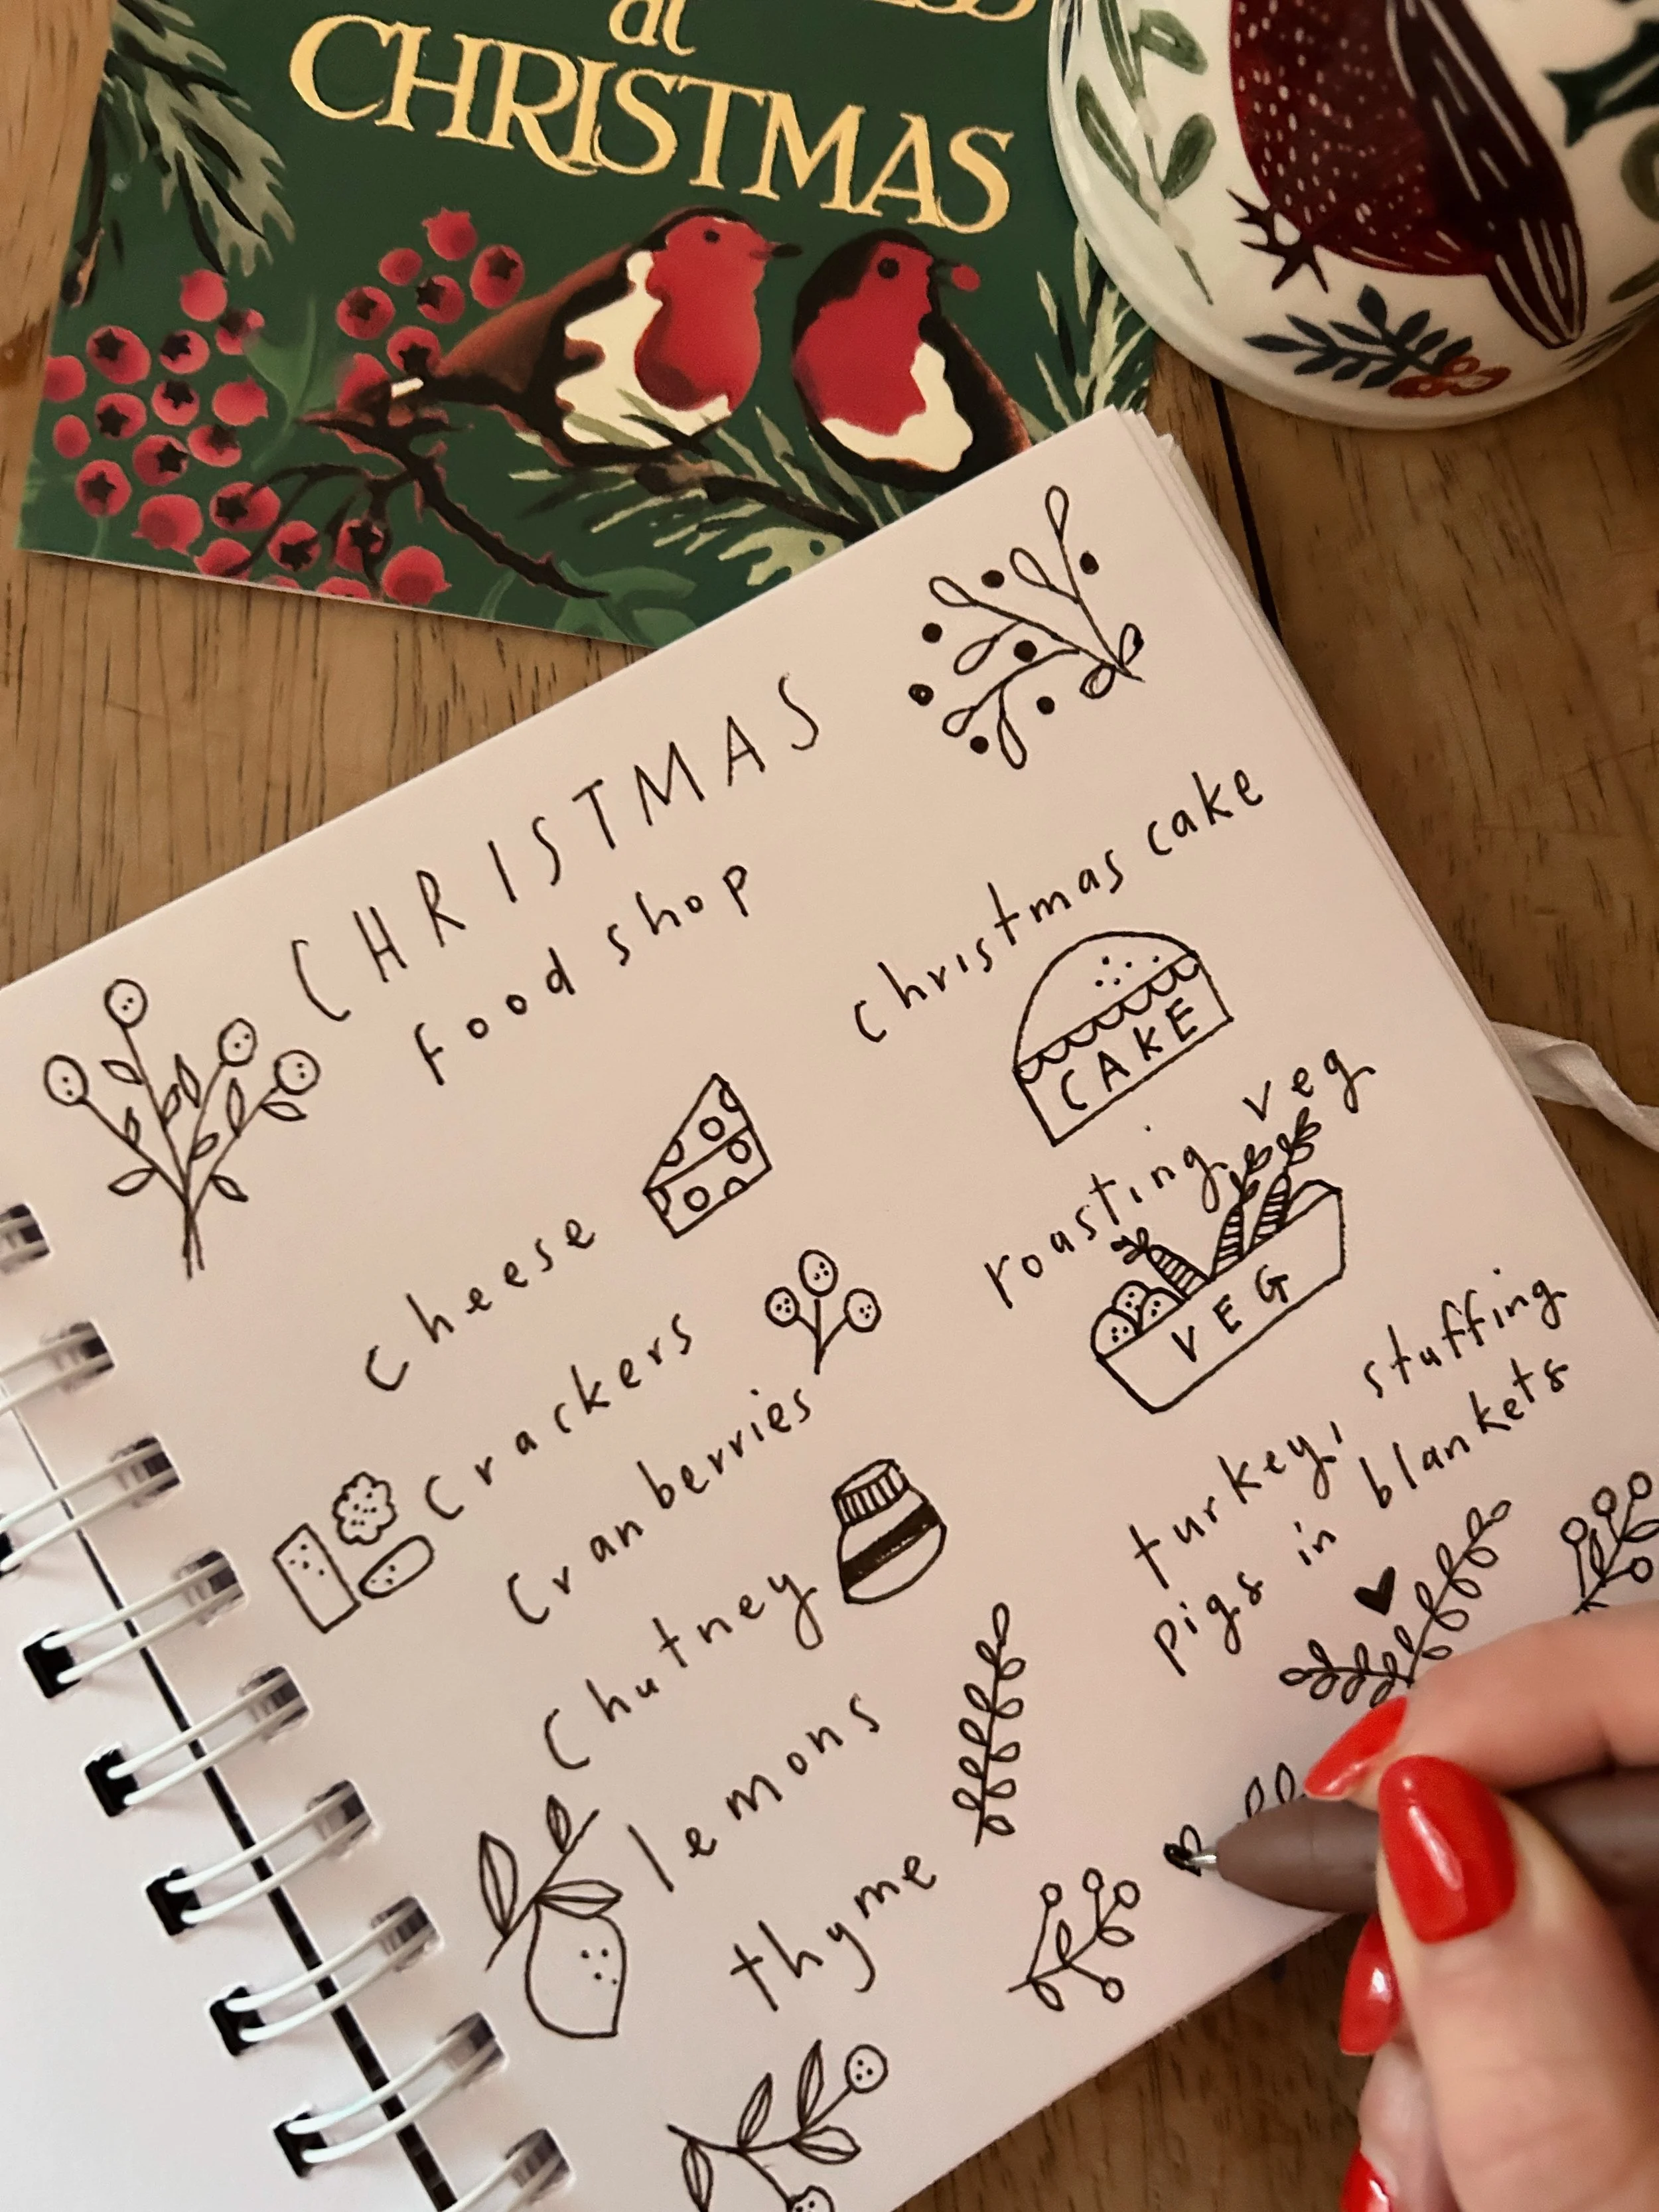 at
CHRISTMAS
CHRISTMAS
food shop
cheese
crackers
cranberries
chutney
lemons
thyme
christmas cake
CAKE
roasting veg
VEG
turkey, stuffing
pigs in blankets